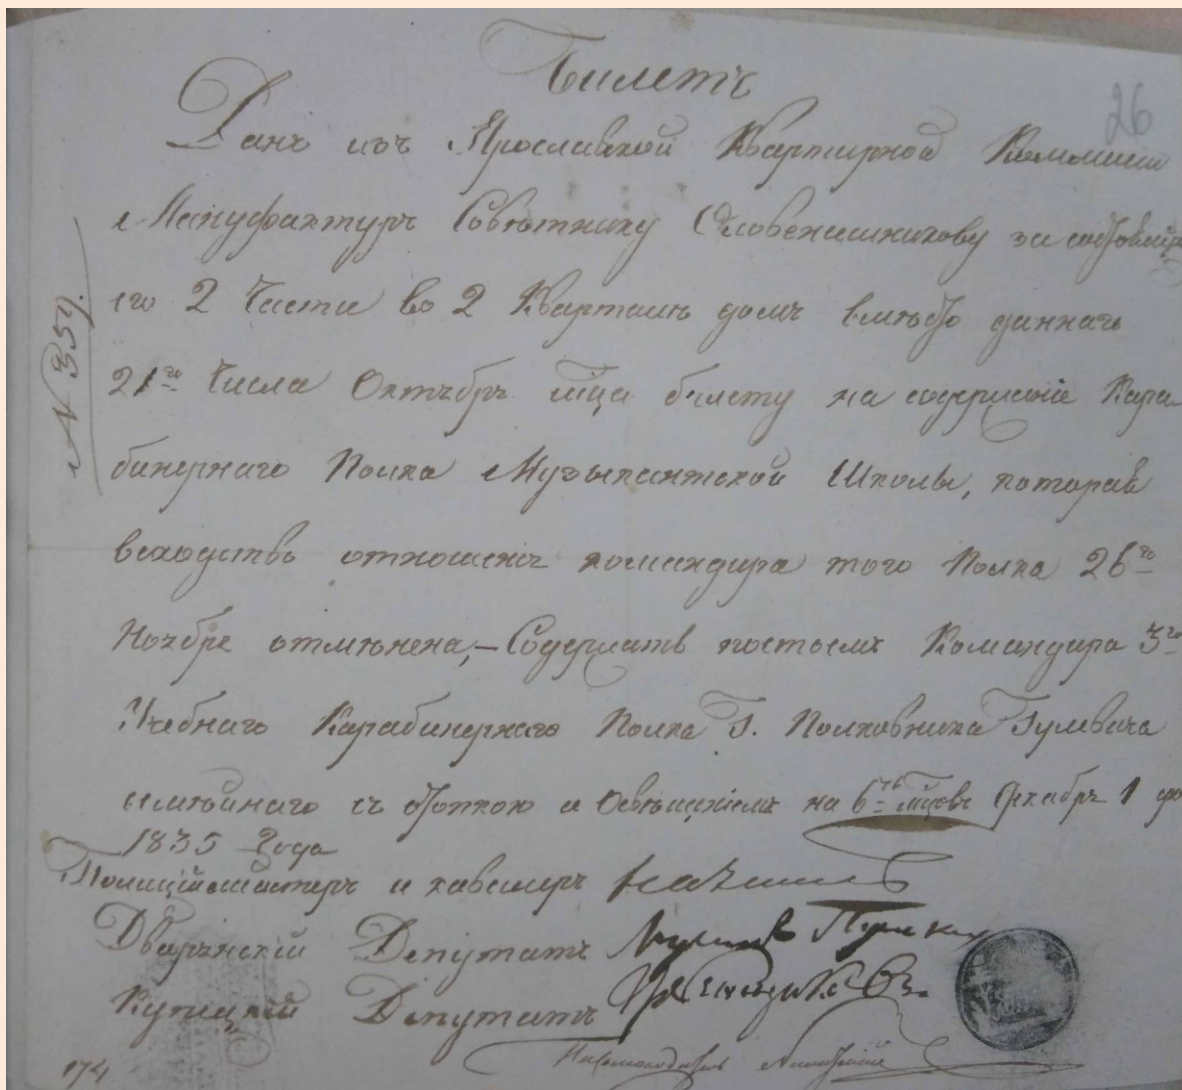 Билетъ
26
Данъ изъ Ярославской Квартирной Коммисіи
Мануфактуръ Совѣтнику Оловенишникову за состоящій
его 2 Части во 2 Кварталѣ домъ вмѣсто даннаго
21го Числа Октября м̃ца билету на содержаніе Кара
бинернаго Полка Музыкантской Школы, которая
отношенія командира того Полка 26го
Ноября отмѣнена,– Содержать постоемъ Командира 3го
Учебнаго Карабинернаго Полка Г. Полковника Гулевича
семѣйнаго съ отопкою и Освѣщеніемъ на 6ть мцовъ Декабря 1 дня
1835 Года
Полиціймейстеръ и кавалеръ
Дварянскій Депутатъ
Купецкій Депутатъ
N 359.
174